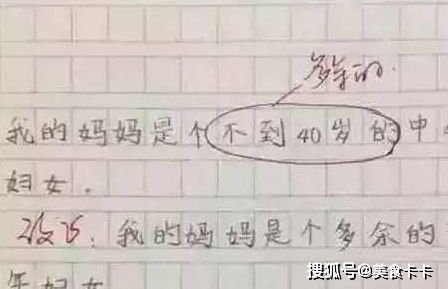 多余的.
我的妈妈是个不到40岁的中
妇女.
改正:我的妈妈是个多余的
年妇女
搜狐号@美食卡卡